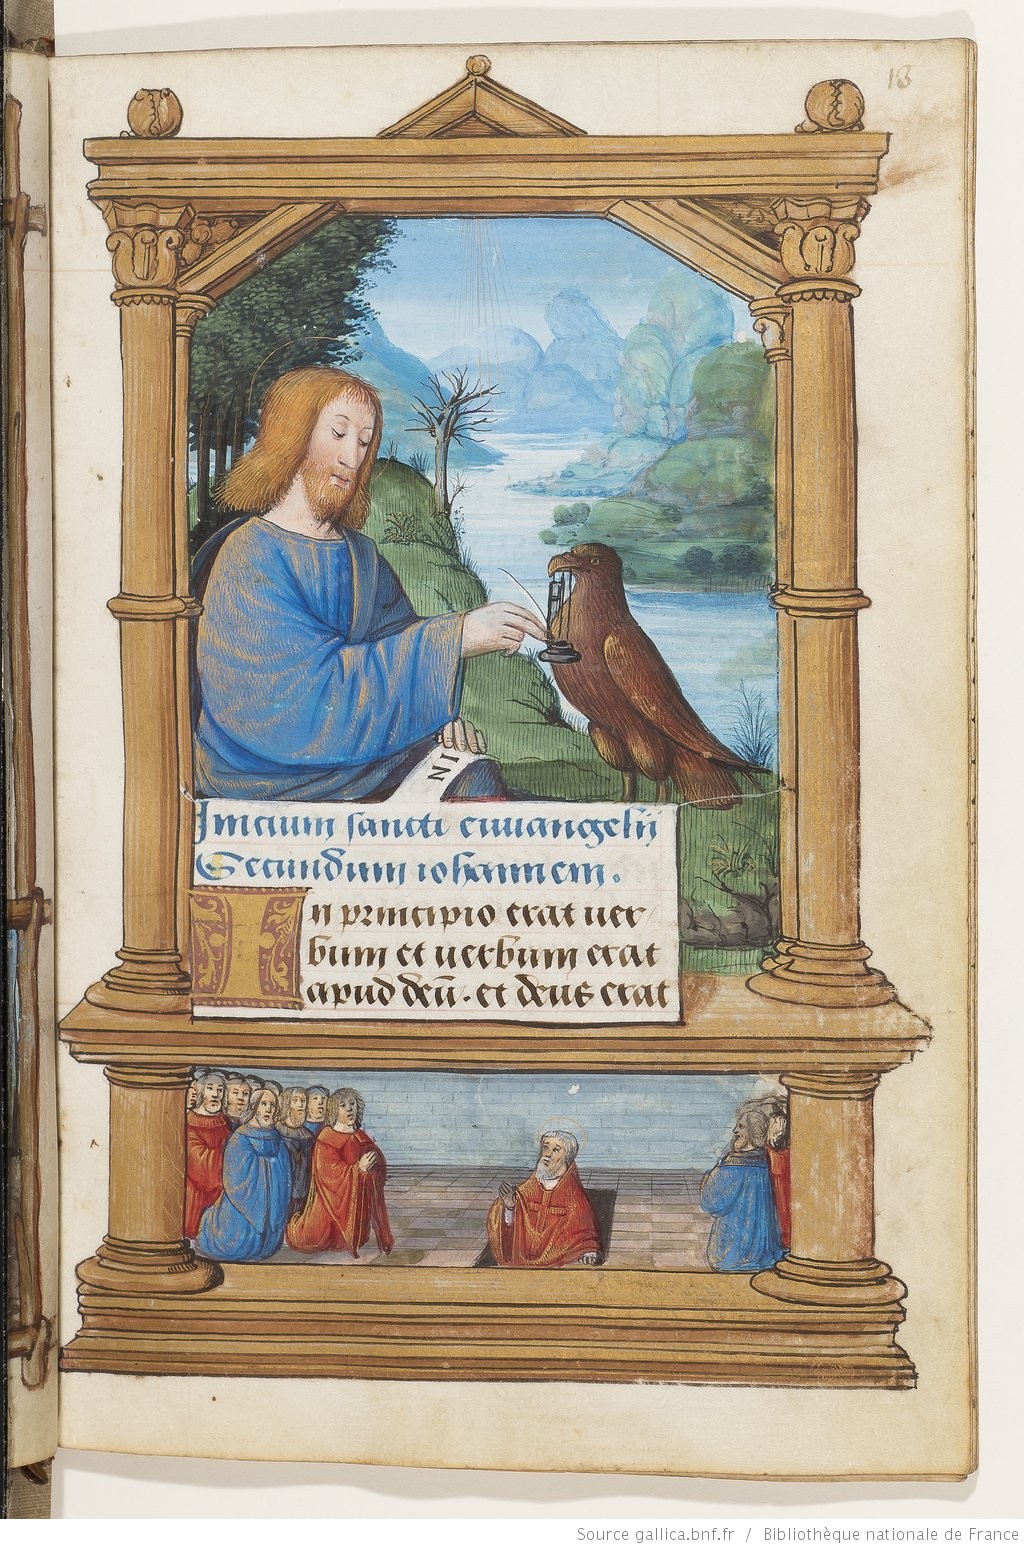 13
IN
Inicium sancti euuangelij
Secundum iohannem.
In principio erat uer
bum et uerbum erat
apud deū. et deus erat
Source gallica.bnf.fr / Bibliothèque nationale de France